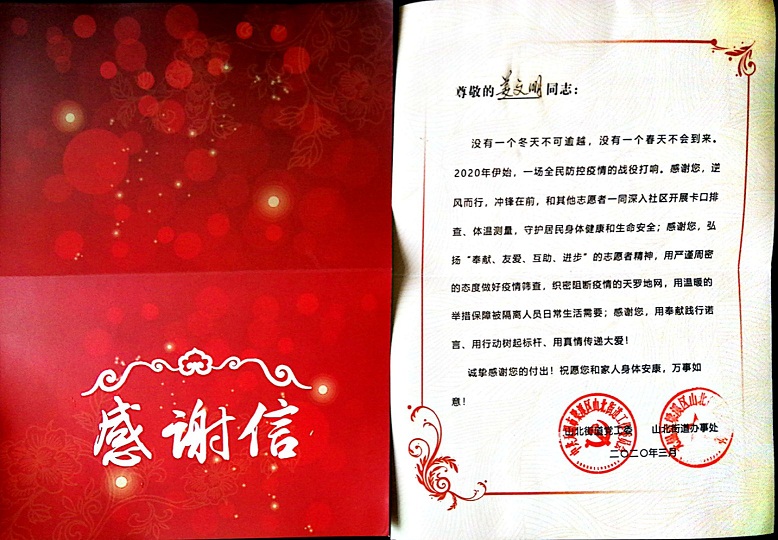 感谢信
尊敬的姜文明同志：
没有一个冬天不可逾越，没有一个春天不会到来。
2020年伊始，一场全民防控疫情的战役打响。感谢您，逆
风而行，冲锋在前，和其他志愿者一同深入社区开展卡口排
查、体温测量，守护居民身体健康和生命安全；感谢您，弘
扬“奉献、友爱、互助、进步”的志愿者精神，用严谨周密
的态度做好疫情筛查，织密阻断疫情的天罗地网，用温暖的
举措保障被隔离人员日常生活需要；感谢您，用奉献践行诺
言、用行动树起标杆、用真情传递大爱！
诚挚感谢您的付出！祝愿您和家人身体安康，万事如
意！
山北街道党工委 山北街道办事处
二〇二〇年三月